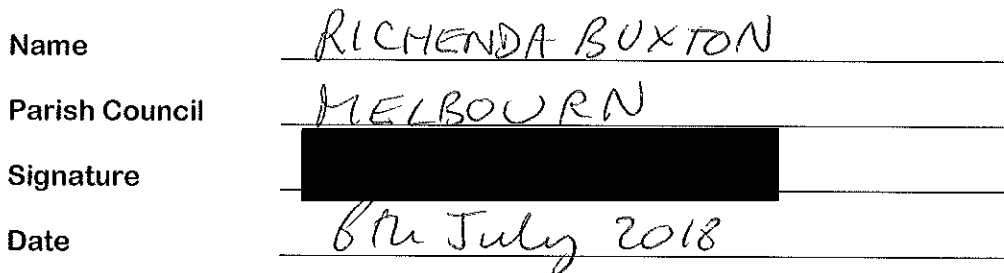 Name RICHENDA BUXTON
Parish Council MELBOURN
Signature
Date 6th July 2018